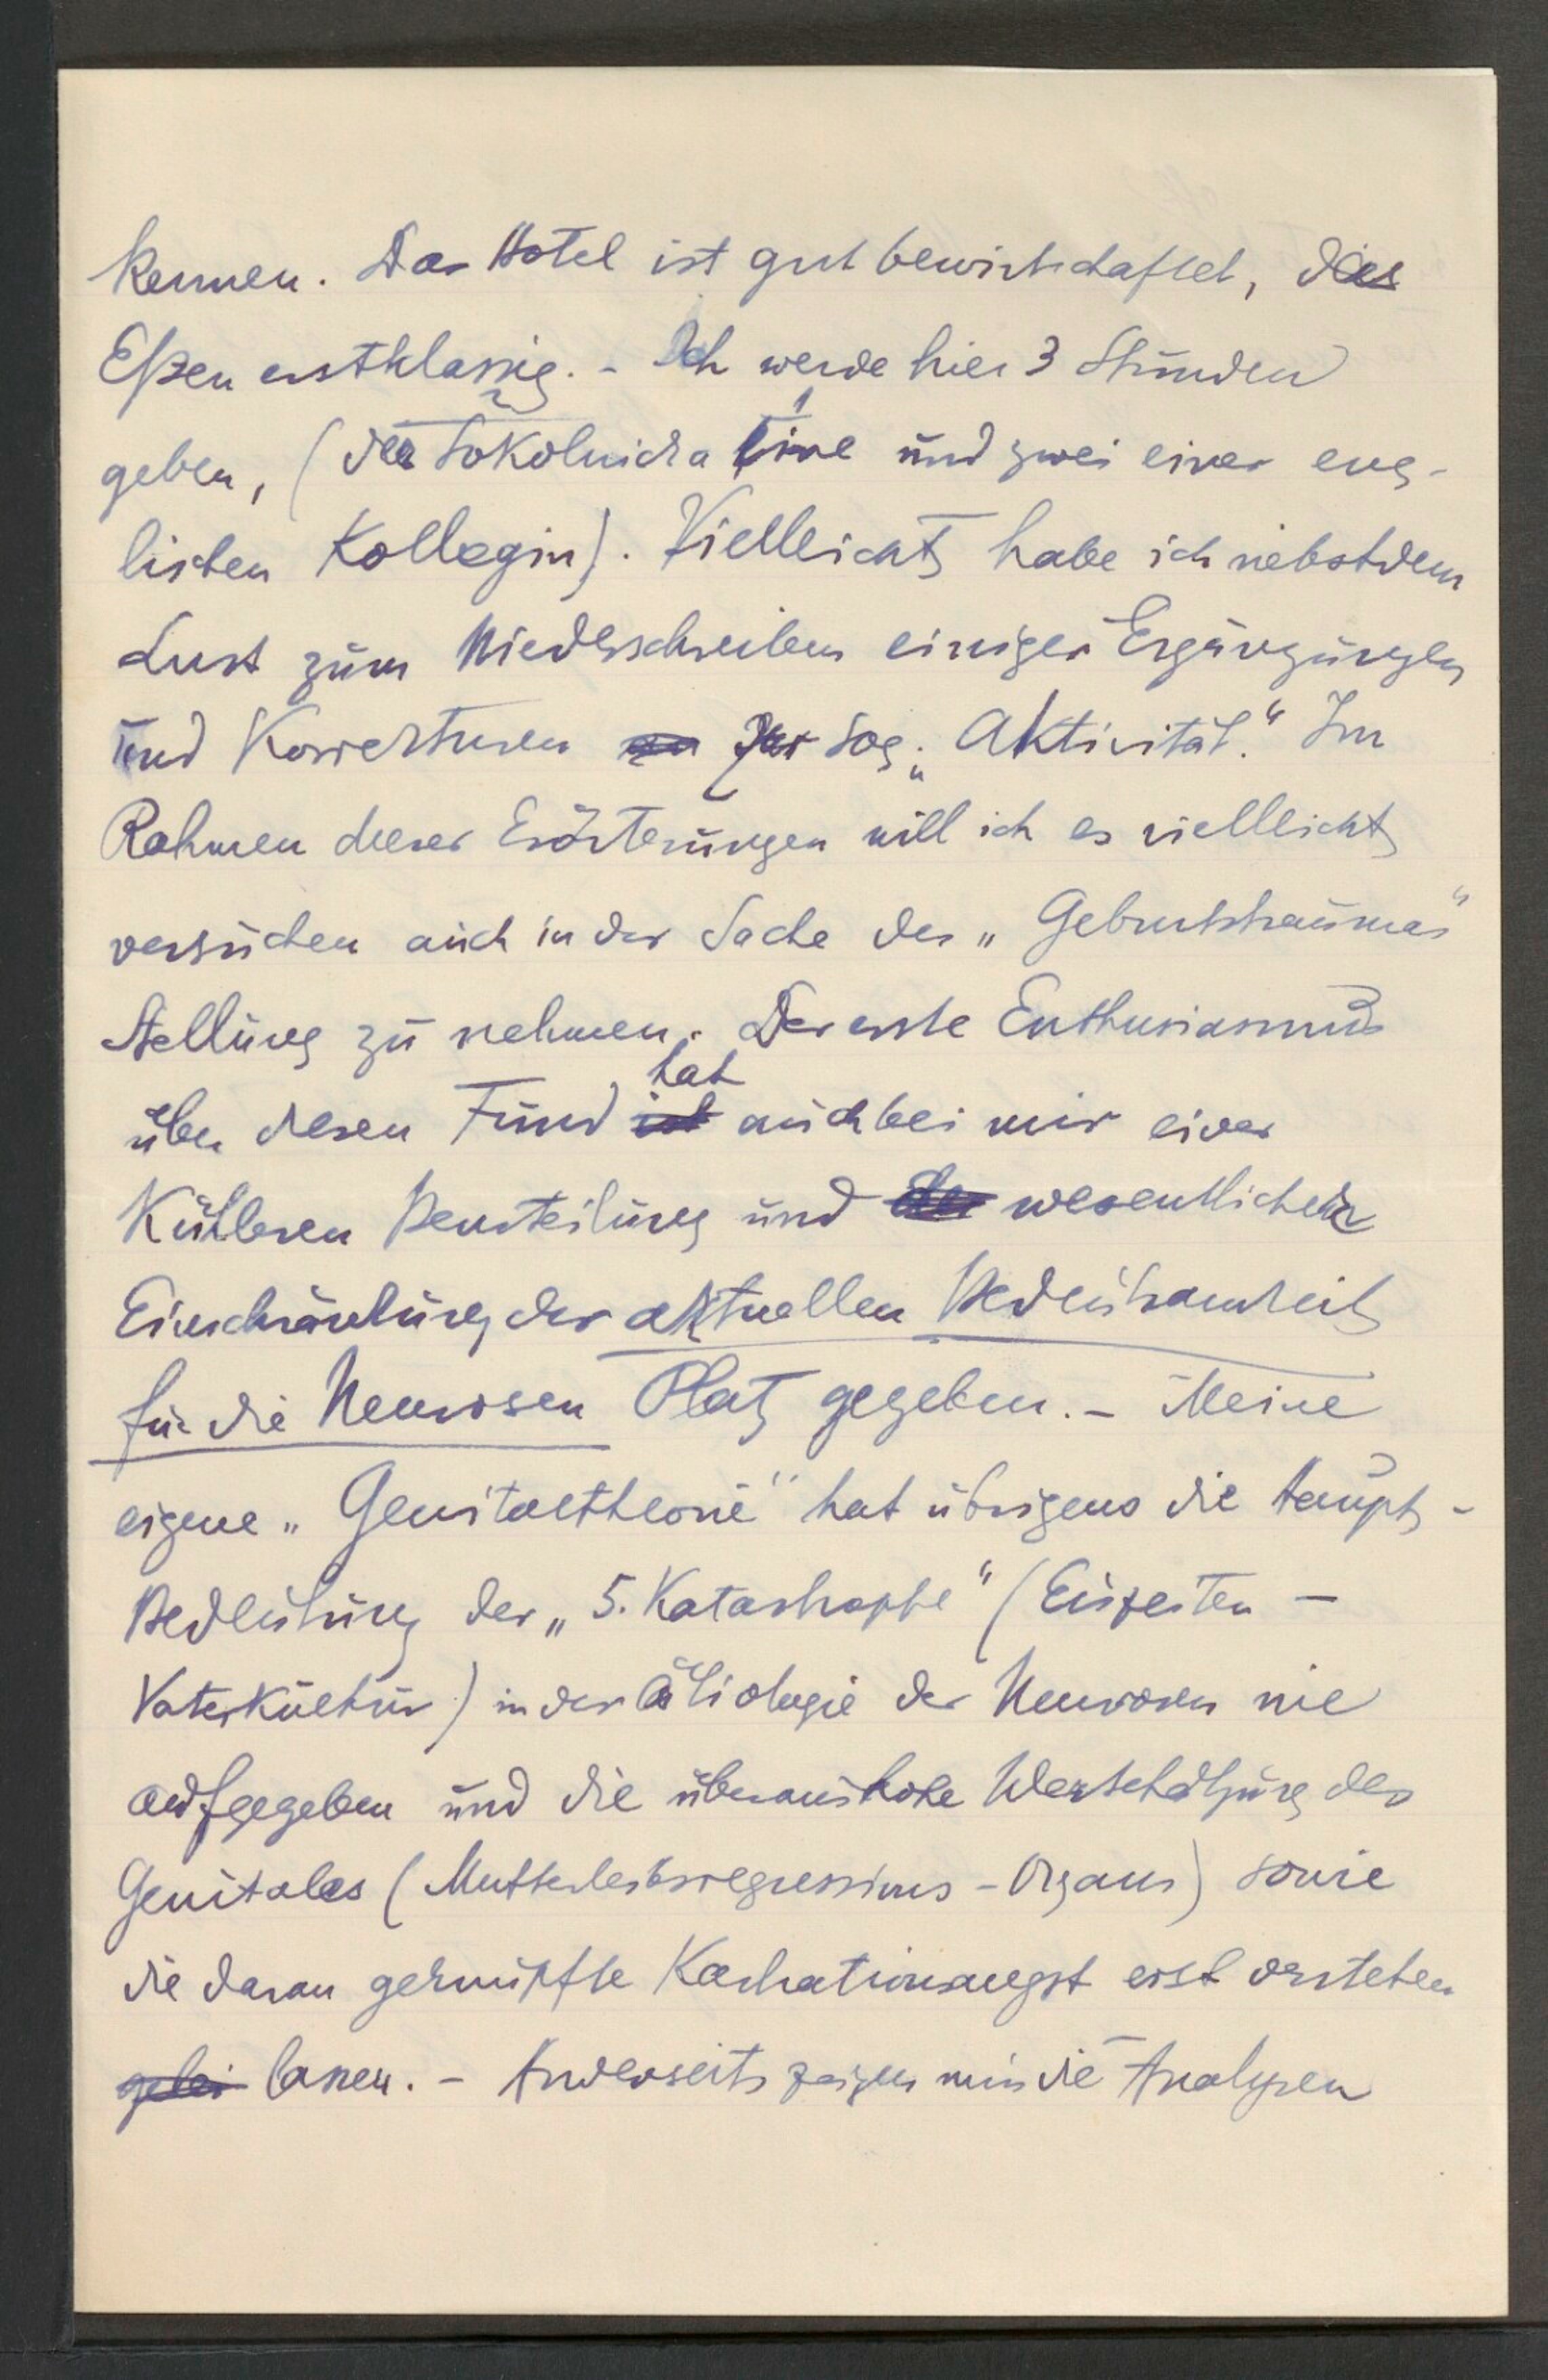 kennen. Das Hotel ist gut bewirtschaftet, das
Eßen erstklassig. - Ich werde hier 3 Stunden
geben, (der Sokolnicka Eine und zwei einer eng-
lischen Kollegin). Vielleicht habe ich nebstdem
Lust zum Niederschreiben einiger Ergänzungen
und Korrekturen zur sog. „Aktivität." Im
Rahmen dieser Erörterungen will ich es vielleicht
versuchen auch in der Sache des „Geburtstraumas"
Stellung zu nehmen. Der erste Enthusiasmus
über diesen Fund ist hat auch bei mir einer
Kühleren Beurteilung und der wesentlichen
Einschränkung der aktuellen Bedeutsamkeit
für die Neurosen Platz gegeben. - Meine
eigene „Genitaltheorie" hat übrigens die Haupt-
Bedeutung der „5. Katastrophe" (Eiszeiten -
Vaterkultur) in der Ätiologie der Neurosen nie
aufgegeben und die überaus hohe Wertschätzung des
Genitales (Mutterleibsregressions-Organs) sowie
die daran geknüpfte Kastrationsangst erst verstehen
gelei lassen. - Anderseits zeigen mir die Analysen